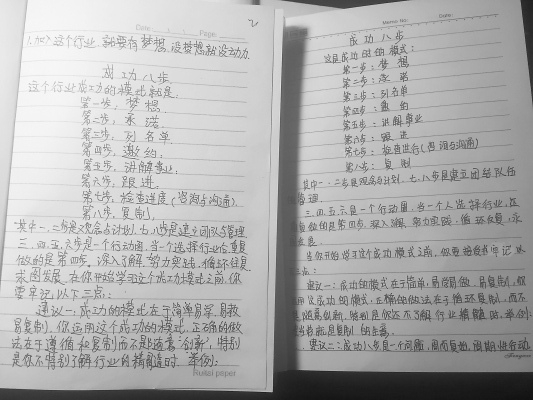 Date: Page:
2
1.加入这个行业,就要有梦想,没梦想就没动力.
成功八步.
这个行业成功的模式就是.
第一步,梦想.
第二步,承诺.
第三步,列名单.
第四步,邀约.
第五步,讲解事业.
第六步,跟进.
第七步,检查进度(咨询与沟通).
第八步,复制.
其中一.二步是观念与计划.七.八步是建立团队与管理
三.四.五.六步是一个行动圈.当个选择行业后重复
做的是第四步.深入了解.努力实践.循环往复.
求图发展.在你开始学习这个成功模式之前,你
要牢记以下三点:
建议一:成功的模式在于简单易学.易教
易复制.你运用这个成功的模式.正确的做
法在于遵循和复制而不是随意创新,特别
是你不特别了解行业的精髓时.举例:
Rulai paper
Memo No: Date:
成功八步
这是成功的模式:
第一步:梦想
第二步:承诺
第三步:列名单
第四步:邀约
第五步:讲解事业
第六步:跟进
第七步:检查进行(咨询与沟通)
第八步:复制
其中一.二步是观念与计划.七.八步是建立团与队伍
管理.
三.四.五.六是一个行动圈,当一个人选择行业,在
做的是第四步.深入了解.努力实践.循环往复,永
当你开始学习这个成功模式之前.你要接受与牢记
点:
建议一:成功的模式在于简单,易学易做.易复制,你
用这成功的模式,正确的做法在于循环复制,而不
是随意创新.特别是你还不了解行业精髓时,举例:
建议二:成功八步是一个问题,周而复始,周期性行动